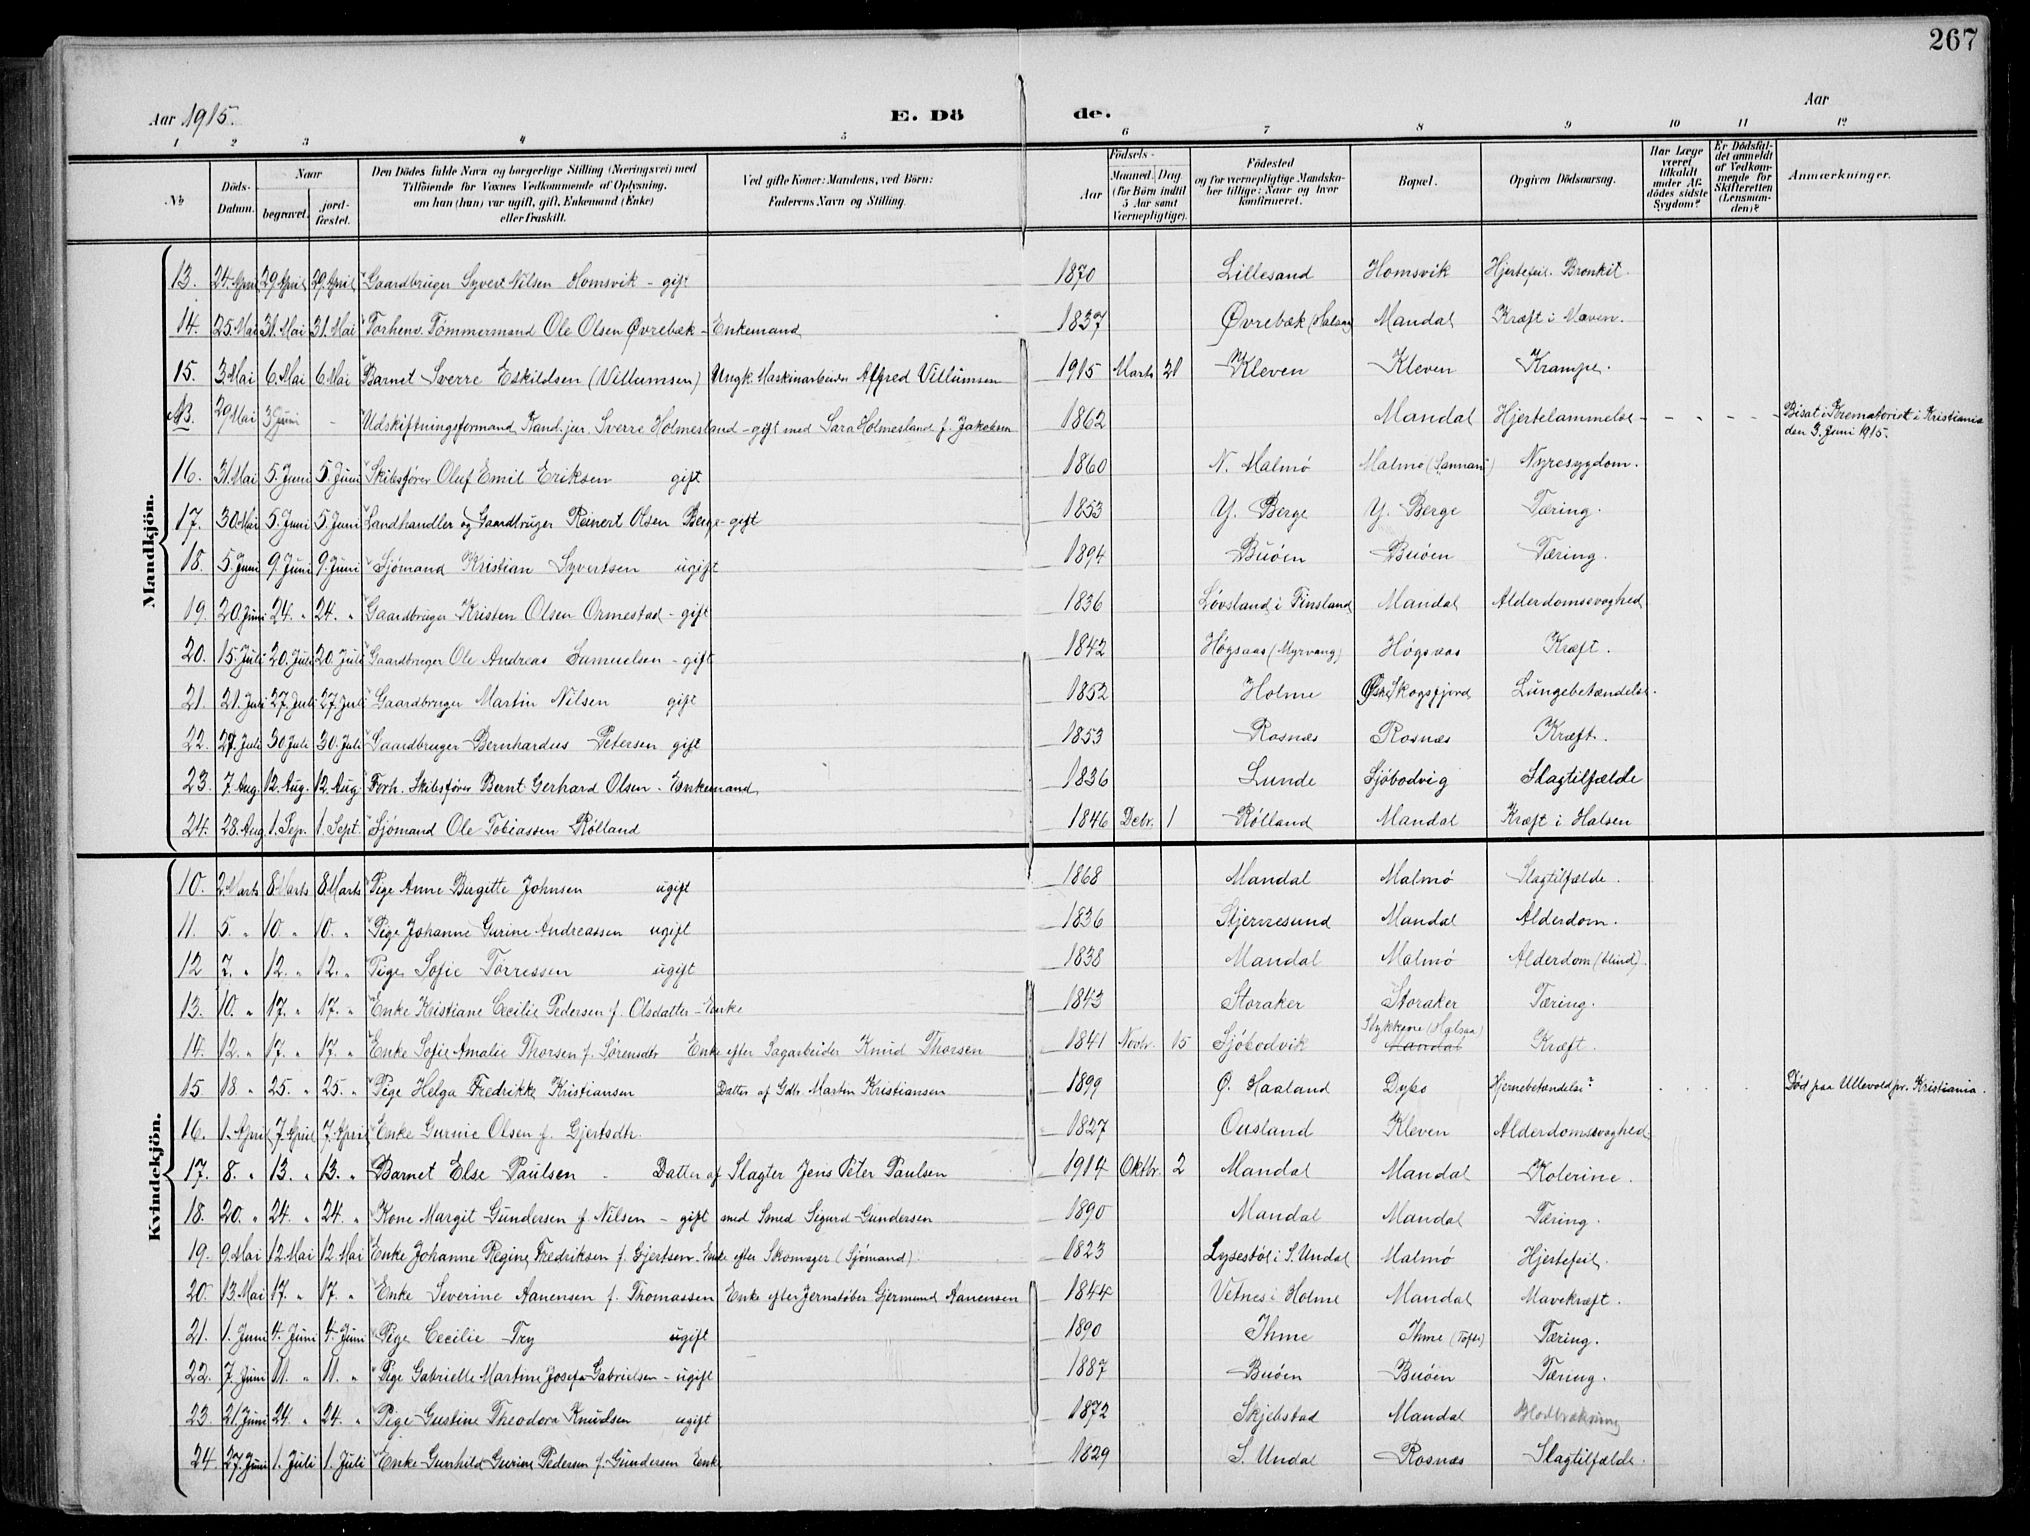 267
Aar 1915.
E. Dö de.
Aar
1 2 3 4 5 6 7 8 9 10 11 12
№
Döds-Datum.
Naar begravet. jordfæstet.
Den Dödes fulde Navn og borgerlige Stilling (Næringsvei) med Tilföiende for Voxnes Vedkommende af Oplysning, om han (hun) var ugift, gift, Enkemand (Enke) eller fraskilt.
Ved gifte Koner: Mandens, ved Börn: Faderens Navn og Stilling.
Födsels- Aar Maaned. Dag. (for Börn indtil 5 Aar samt Værnepligtige).
Födested og for værnepligtige Mandskaber tillige: Naar og hvor konfirmeret.
Bopæl.
Opgiven Dödsaarsag.
Har Læge været tilkaldt under Afdödes sidste Sygdom?
Er Dödsfaldet anmeldt af Vedkommende for Skifteretten (Lensmanden)?
Anmærkninger.
Mandkjön.
13. 24. April 29 April 29. April Gaardbruger Syvert Nilsen Homsvik - gift 1870 Lillesand Homsvik Hjertefeil. Bronkit.
14. 25. Mai 31. Mai 31. Mai Forhenv. Tømmermand Ole Olsen Øvrebæk - Enkemand 1837 Øvrebæk (Halsaa) Mandal Kræft i Maven.
15. 3. Mai 6. Mai 6. Mai Barnet Sverre Eskildsen (Villumsen) Ungk. Maskinarbeider Alfred Villumsen 1915 Marts 20 Kleven Kleven Krampe.
NB. 29 Mai 3 Juni - Udskiftningsformand, Kand. jur. Sverre Holmesland - gift med Sara Holmesland f. Jakobsen 1862 Mandal Hjertelammelse - - - - Bisat i Krematoriet i Kristiania den 3. Juni 1915.
16. 31. Mai 5. Juni 5. Juni Skibsfører Oluf Emil Eriksen gift 1860 N. Malmø Malmø (Sannan) Nyresygdom.
17. 30. Mai 5. Juni 5. Juni Landhandler og Gaardbruger Reinert Olsen Berge - gift 1853 Y. Berge Y. Berge Tæring.
18. 5 Juni 9. Juni 9. Juni Sjømand Kristian Syvertsen ugift 1894 Buøen Buøen Tæring.
19. 20. Juni 24. " 24. " Gaardbruger Kristen Olsen Ormestad - gift 1836 Løvsland i Finsland Mandal Alderdomsvaghed
20. 15. Juli 20. Juli 20. Juli Gaardbruger Ole Andreas Samuelsen - gift 1842 Høgsaas (Myrvang) Høgsaas Kræft.
21. 21. Juli 27. Juli 27. Juli Gaardbruger Martin Nilsen gift 1852 Holme Øsre Skogsfjord Lungebetændelse.
22. 27. Juli 30 Juli 30. Juli Gaardbruger Bernhardus Petersen gift 1853 Rosnæs Rosnæs Kræft.
23. 7. Aug. 12. Aug. 12. Aug Forh. Skibsfører Bernt Gerhard Olsen - Enkemand 1836 Lunde Sjøbodvig Slagtilfælde
24. 28. Aug 1. Sep. 1. Sept. Sjømand Ole Tobiassen Rølland 1846 Debr. 1 Rølland Mandal Kræft i Halsen
Kvindekjön.
10. 2. Marts 8. Marts 8. Marts Pige Anne Bergitte Johnsen ugift 1868 Mandal Malmø Slagtilfælde.
11. 5. " 10 " 10. " Pige Johanne Gurine Andreassen ugift 1836 Stjernesund Mandal Alderdom.
12 7. " 12. " 12. " Pige Sofie Torressen ugift 1838 Mandal Malmø Alderdom (blind).
13. 10. " 17. " 17. " Enke Kristiane Cecilie Pedersen f. Olsdatter - Enke 1843 Storaker Storaker Tæring.
14. 12. " 17. " 17. " Enke Sofie Amalie Thorsen f. Sørensdtr Enke efter Sagarbeider Knud Thorsen 1841 Novbr. 15 Sjøbodvik Stykkene (Halsaa) Mandal Kræft.
15 18 " 25. " 25. " Pige Helga Fredrikke Kristiansen Datter af Gdbr. Martin Kristiansen 1899 Ø. Haaland Dybo Hjernebetændelse? Død paa Ullevold pr. Kristiania.
16. 1. April 7. April 7. April Enke Gurine Olsen f. Gjertsdtr. 1827 Ousland Kleven Alderdomsvaghed
17. 8. " 13. " 13. " Barnet Else Paulsen - Datter af Slagter Jens Peter Paulsen 1914 Oktbr. 2 Mandal Mandal Kolerine.
18. 20. " 24. " 24. " Kone Margit Gundersen f. Nilsen - gift med Smed Sigurd Gundersen 1890 Mandal Mandal Tæring.
19. 9. Mai 12. Mai 12. Mai Enke Johanne Regine Fredriksen f. Gjertsen. Enke efter Skomager (Sjømand). 1823 Lysestøl i S. Undal Malmø Hjertefeil.
20. 13. Mai 17. " 17. " Enke Severine Aanensen f. Thomassen Enke efter Jernstøber Gjermund Aanensen 1844 Vetnes i Holme Mandal Mavekræft.
21. 1. Juni 4. Juni 4. Juni Pige Cecilie Try ugift 1890 Ihme Ihme (Tofte) Tæring.
22. 7 Juni 11. " 11. " Pige Gabrielle Martine Josefa Gabrielsen - ugift 1887 Buøen Buøen Tæring.
23. 21. Juni 24. " 24. " Pige Gustine Theodora Knudsen ugift 1872 Skjebstad Mandal Blodbrækning
24. 27. Juni 1. Juli 1. Juli Enke Gunhild Gurine Pedersen f. Gundersen Enke 1829 S. Undal Rosnæs Slagtilfælde.